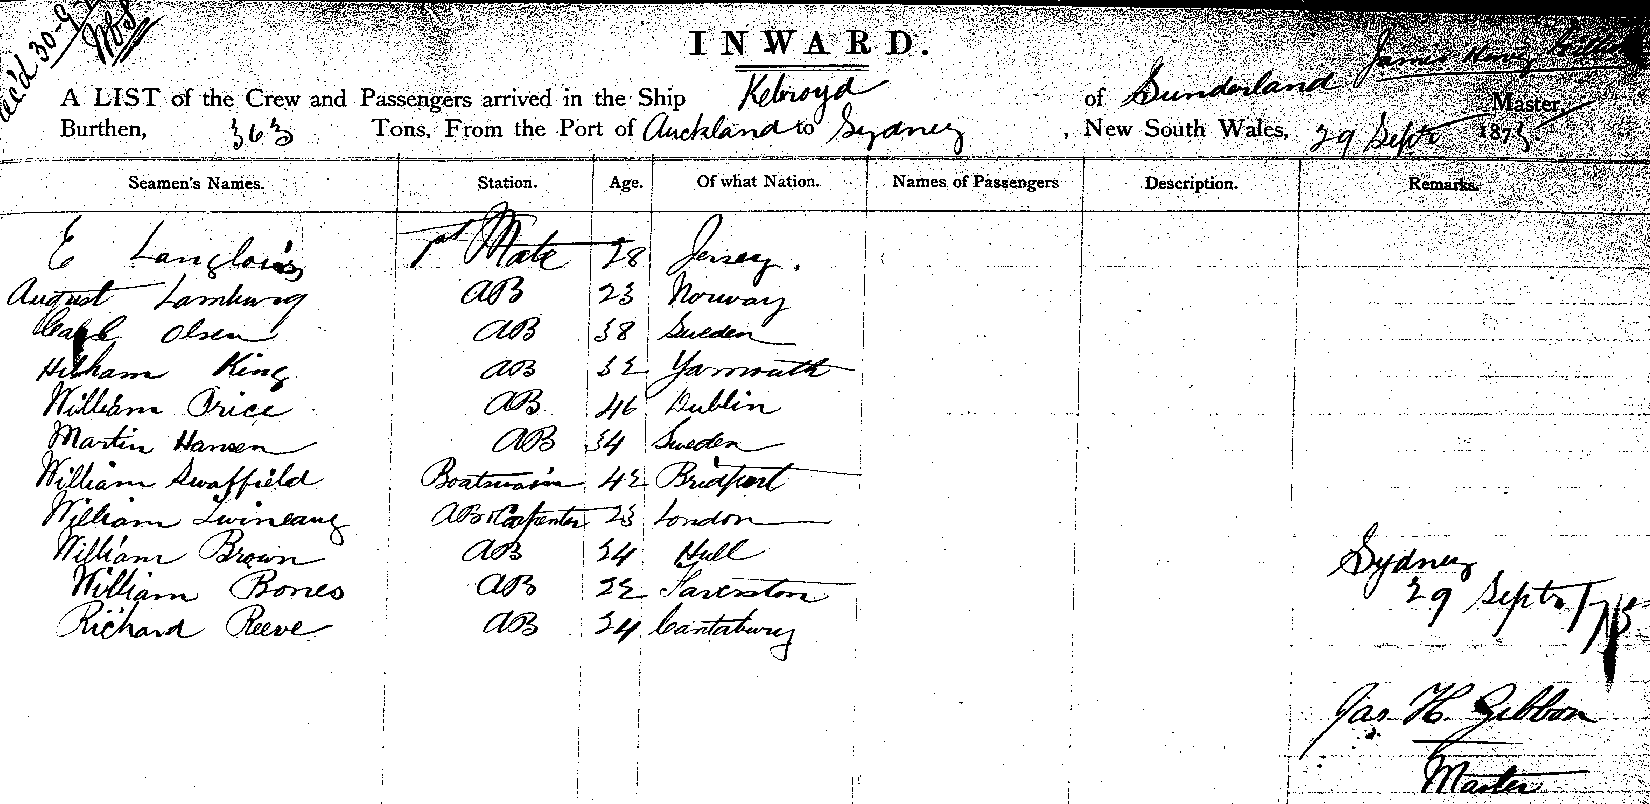 Rec'd 30-9-
INWARD.
A LIST of the Crew and Passengers arrived in the Ship Kelroyd of Sunderland James Henry Gibbon Master,
Burthen, 363 Tons, From the Port of Auckland to Sydney, New South Wales, 29 Septr 1875
Seamen's Names. Station. Age. Of what Nation. Names of Passengers Description. Remarks.
E Langlois 1st Mate 28 Jersey.
August Lamburg AB 23 Norway
Carl Olsen AB 38 Sweden
King AB 32 Yarmouth
William Price AB 46 Dublin
Martin Hansen AB 34 Sweden
William Swaffield Boatswain 42 Bridport
William AB & Carpenter 23 London
William Brown AB 34 Hull
William Bones AB 22
Richard Reeve AB 24 Cantabury
Sydney
29 Septr /75
Jas. H. Gibbon
Master